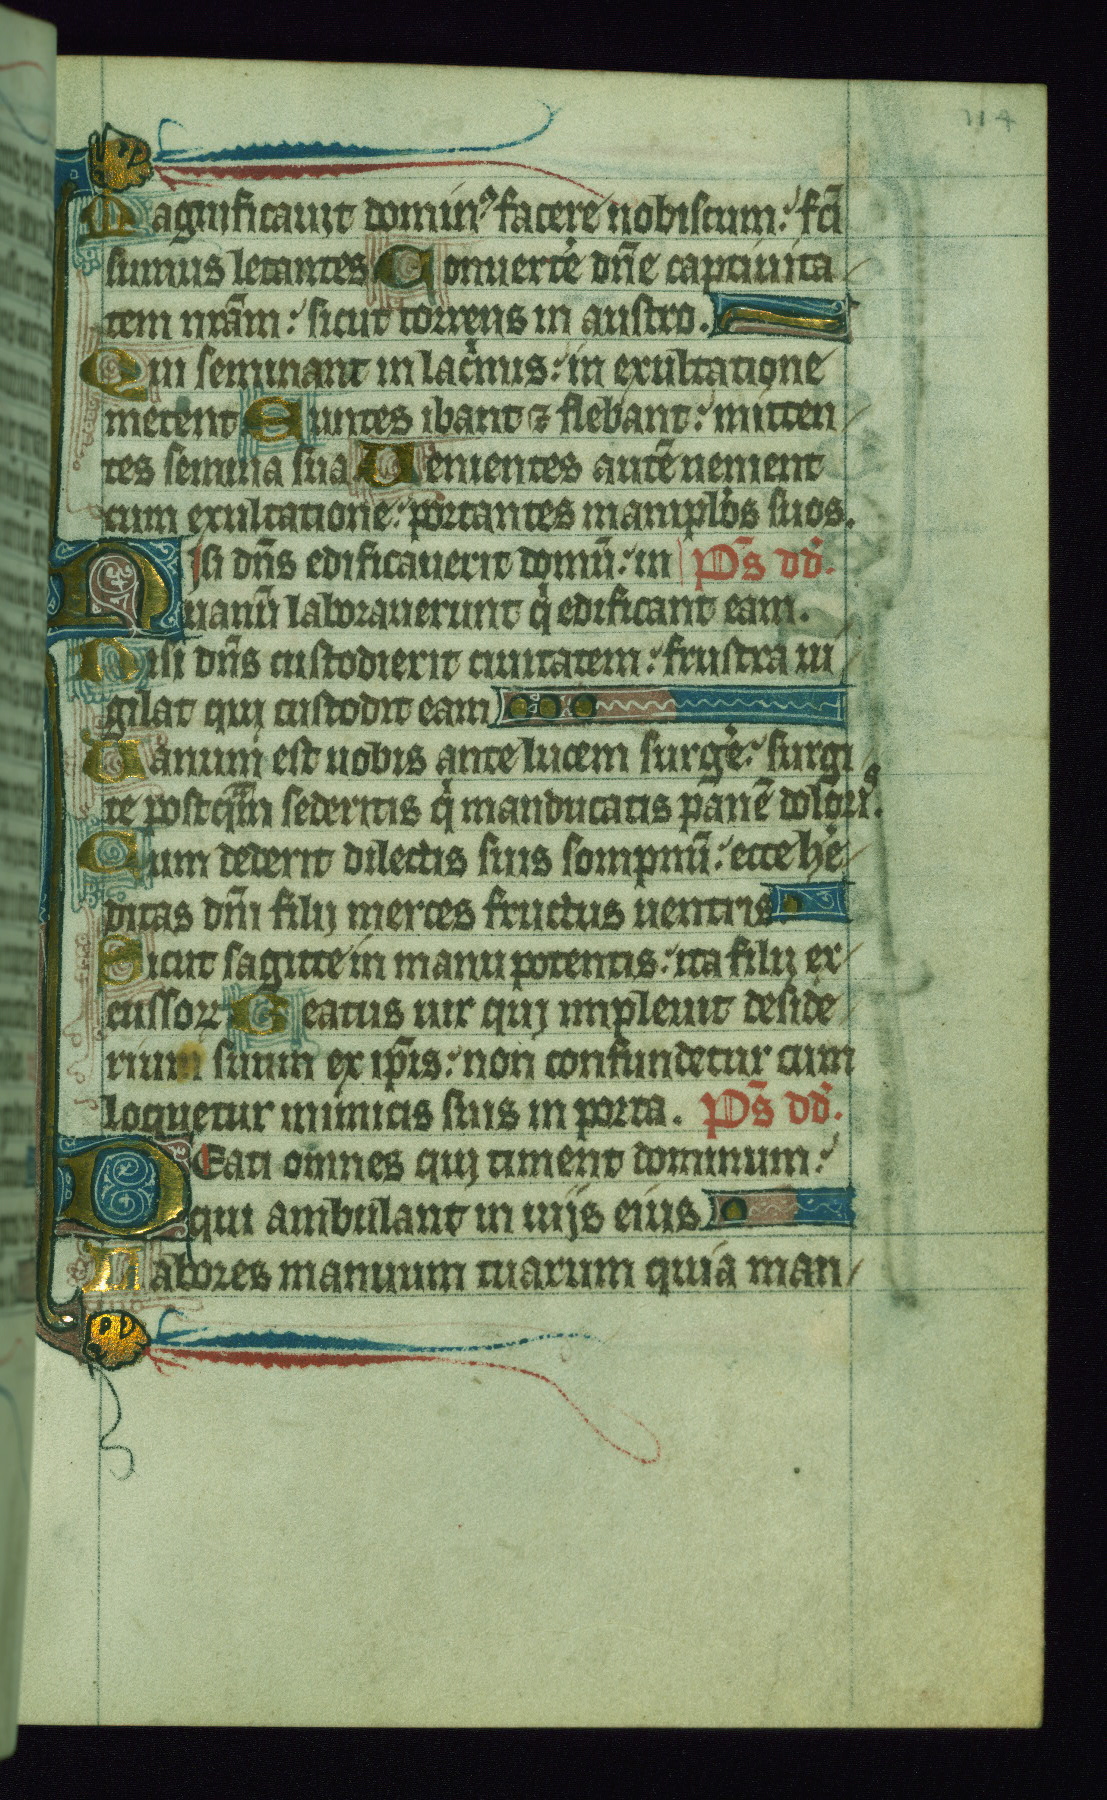 114
Magnificauit domin⁹ facere nobiscum: fc̄i
sumus letantes Conuerte dn̄e captiuita
tem nrām: sicut torrens in austro.
Qui seminant in lac̓mis: in exultatione
metent Euntes ibant ⁊ flebant: mitten
tes semina sua Uenientes autē uenient
cum exultatione: portantes maniplos suos.
Nisi dn̄s edificauerit domū: in Ps̄ dd̓.
uanū laborauerunt q̓ edificant eam.
Nisi dn̄s custodierit ciuitatem: frustra ui
gilat qui custodit eam
Uanum est uobis ante lucem surge̓: surgi
te postqᵃm sederitis q̓ manducatis panē dolori⁹.
Cum dederit dilectis suis sompnū: ecce he̓
ditas dn̄i filij merces fructus uentris
Sicut sagitte in manu potentis: ita filij ex
cussoꝝ Beatus uir qui impleuit deside
rium suum ex ip̄is: non confundetur cum
loquetur inimicis suis in porta. Ps̄ dd̓.
BEati omnes qui timent dominum:
qui ambulant in uijs eius
Labores manuum tuarum quia man